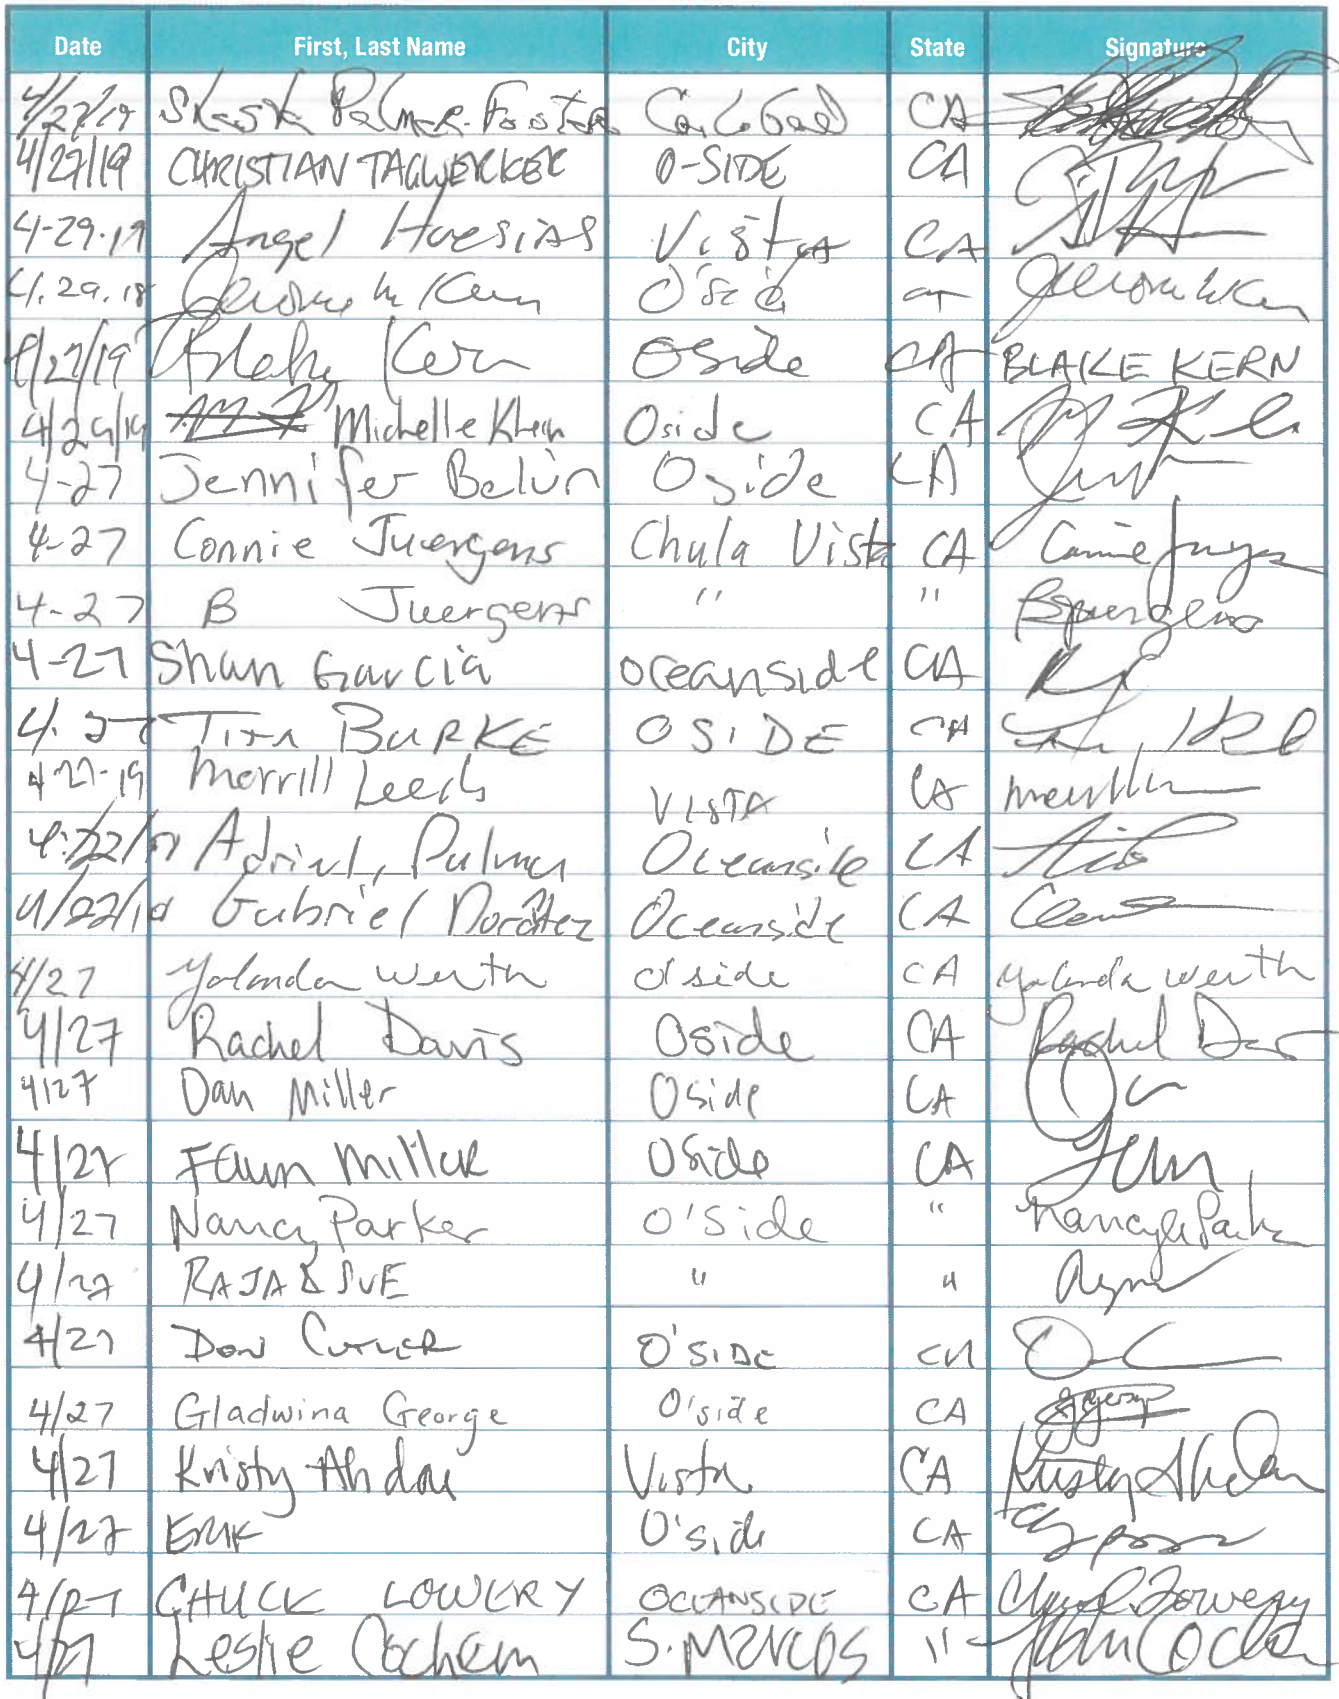 Date First, Last Name City State Signature
4/27/19 Palmer-Foster Carlsbad CA
4/27/19 CHRISTIAN TAGWERKER O-SIDE CA
4-29-19 Angel Vista CA
4.29.18 Jerome M Kern O'Side
4/27/19 Blake Kern Oside CA BLAKE KERN
4/29/19 Michelle Klein Oside CA
4-27 Jennifer Belvin Oside CA
4-27 Connie Juergens Chula Vista CA Connie Juergens
4-27 B Juergens " " B Juergens
4-27 Shan Garcia Oceanside CA
4.27 BURKE OSIDE CA
4-27-19 Merrill Leeds VISTA CA
Palmer Oceanside CA
Gabriel Oceanside CA
4/27 Yolanda Werth O'side CA Yolanda Werth
4/27 Rachel Davis Oside CA Rachel
4/27 Dan Miller Oside CA
4/27 Faun Miller Oside CA Faun
4/27 Nancy Parker O'Side " Nancy Parker
4/27 RAJA & SUE " "
4/27 Don O'SIDE CA
4/27 Gladwina George O'side CA
4/27 Kristy Ahdou Vista CA Kristy
4/27 ERIK O'side CA
4/27 CHUCK LOWERY OCEANSIDE CA Chuck Lowery
4/27 Leslie Cochem S. MARCOS "